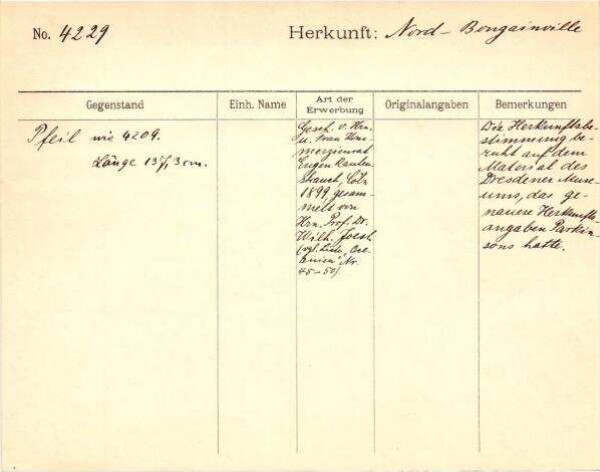 No. 4229
Herkunft: Nord-Bougainville
Gegenstand
Einh. Name
Art der
Erwerbung
Originalangaben
Bemerkungen
Pfeil wie 4209.
Länge 137,3 cm.
Gesch. v. Hrn.
u. Frau Kom-
merzienrat
Eugen Rauten-
strauch, Cöln
1899, gesam-
melt von
Hrn. Prof. Dr.
Wilh. Joest
(vgl. Liste
Nr.
45-50).
Die Herkunftsbe-
stimmung be-
ruht auf dem
Material des
Dresdener Muse-
ums, das ge-
nauere Herkunfts-
angaben Parkin-
sons hatte.